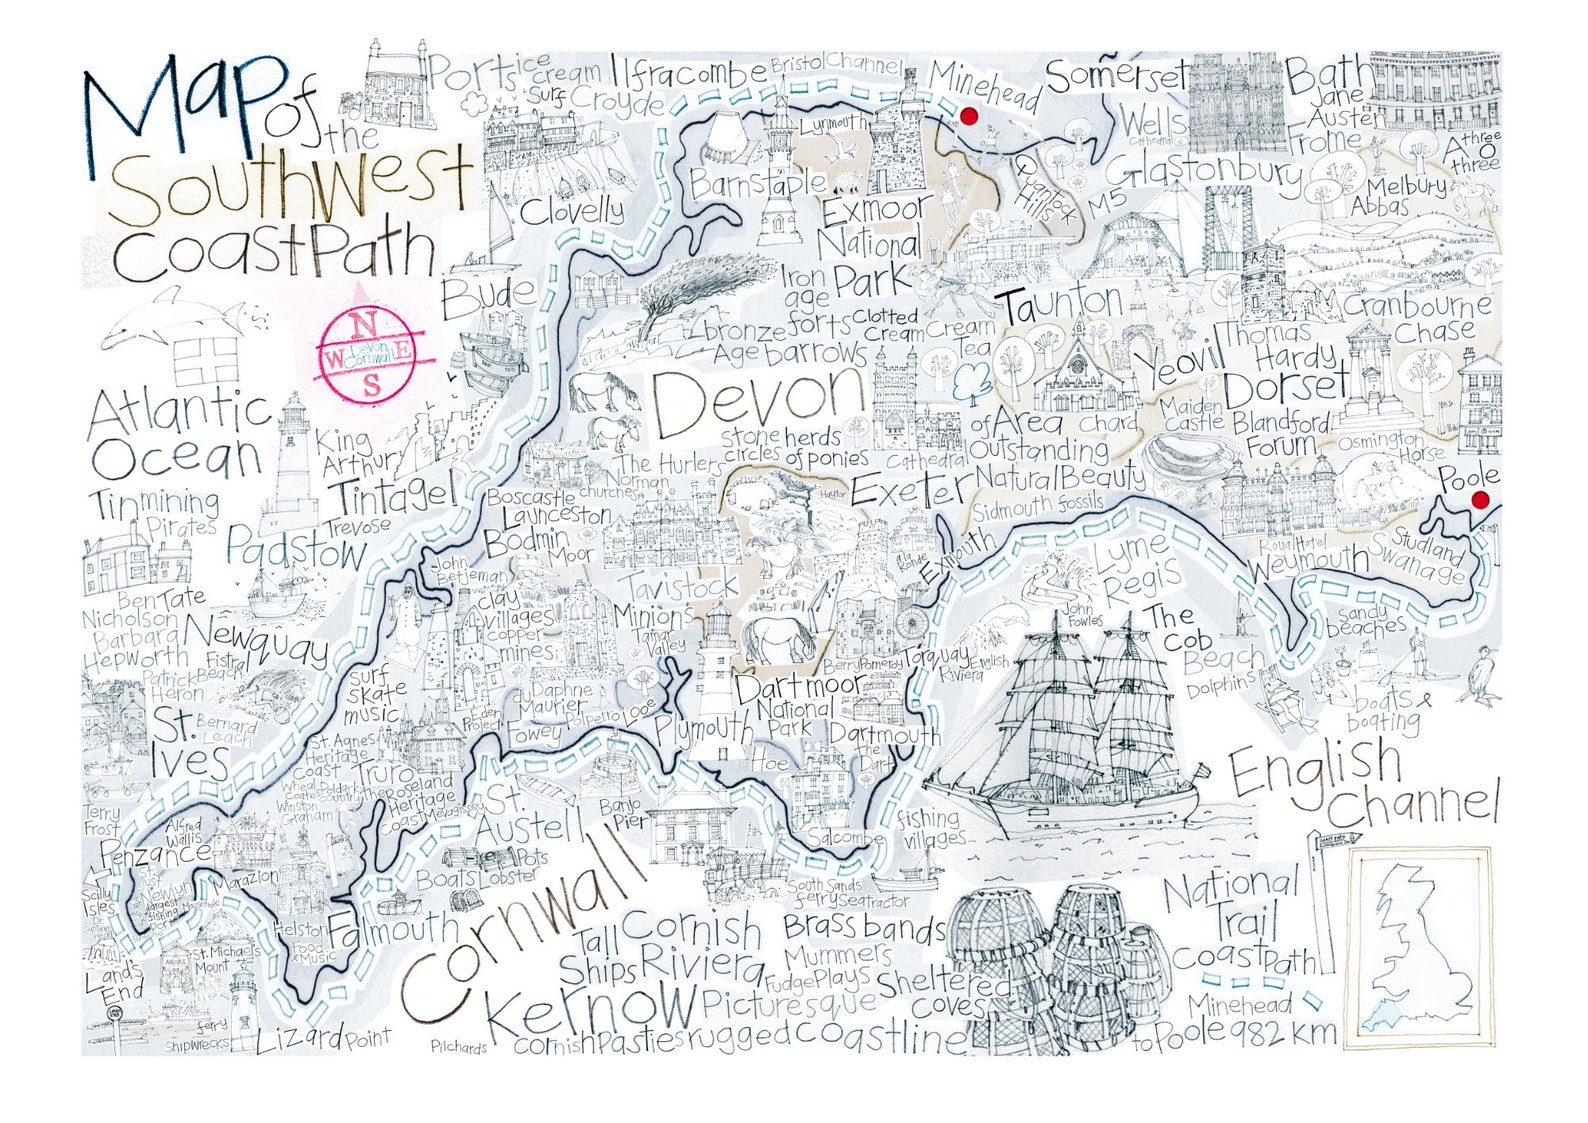 Map of the
South West
Coast Path
Ports
ice cream
surf
Croyde
Ilfracombe
Bristol Channel
Minehead
Somerset
Bath
Jane Austen
Frome
A three O three
Wells
Cathedral
Glastonbury
Melbury Abbas
M5
Quantock Hills
Lynmouth
Barnstaple
Exmoor National Park
Clovelly
Bude
N
W
E
S
Devon
Cornwall
Iron age forts
bronze Age barrows
Clotted Cream
Cream Tea
Taunton
Cranbourne Chase
Thomas Hardy
Yeovil
Dorset
Devon
Atlantic Ocean
King Arthur
Tintagel
Tin mining
Pirates
Trevose
Padstow
stone circles
herds of ponies
Cathedral
The Hurlers
Norman churches
Area of Outstanding Natural Beauty
Chard
Maiden Castle
Blandford Forum
Osmington Horse
Poole
Boscastle
Launceston
Bodmin Moor
Haytor
Exeter
Sidmouth fossils
Exmouth
Lyme Regis
Royal Hotel
Weymouth
Studland
Swanage
John Betjeman
Tavistock
Ben Tate
Nicholson
Barbara Hepworth
Newquay
Fistral Beach
Patrick Heron
clay villages
copper mines
Minions
Tamar Valley
Berry Pomeroy
Torquay
English Riviera
John Fowles
The Cob
Beach
Dolphins
Sandy beaches
boats & boating
St. Ives
Bernard Leach
surf
skate
music
Daphne du Maurier
Eden Project
Fowey
Polperro
Looe
Plymouth
Dartmoor National Park
Dartmouth
the Dart
Hoe
St. Agnes Heritage Coast
Wheal Coates
Poldark Country
Winston Graham
Truro
The Roseland Heritage Coast
Mevagissey
St. Austell
Banjo Pier
Salcombe
fishing villages
English Channel
Terry Frost
Alfred Wallis
Penzance
St. Just
Newlyn
largest fishing port
Mousehole
Marazion
Scilly Isles
Boats
Lobster Pots
South Sands ferry Sea tractor
Land's End
St. Michaels Mount
Helston
Food & Music
Falmouth
Cornwall
ferry
Shipwrecks
Lizard Point
Pilchards
Tall Ships
Cornish Riviera
Brass bands
Mummers Plays
Fudge
Kernow
Picturesque
Sheltered coves
Cornish Pasties
rugged coastline
National Trail
Coast Path
Minehead
to Poole 982 km